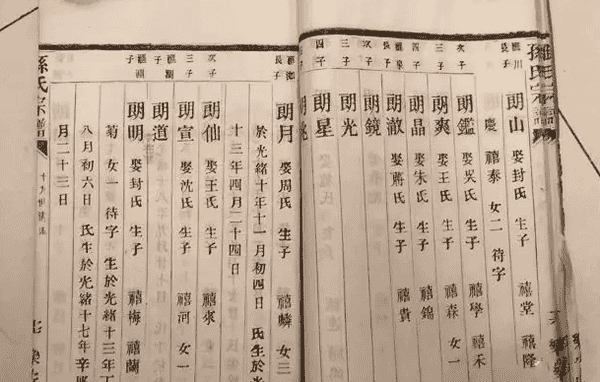 孫氏宗譜
滙川長子 朗山 娶封氏 生子 禧堂 禧隆
慶 禧泰 女二 待字
次子 朗鑑 娶吳氏 生子 禧學 禧禾
三子 朗爽 娶王氏 生子 禧森 女一
四子 朗晶 娶朱氏 生子 禧錦
滙泉長子 朗澈 娶蔣氏 生子 禧貴
次子 朗鏡
三子 朗光
四子 朗星
朗
長子 朗月 娶周氏 生子 禧麟 女三
於光緒十年十一月初四日 氏生於
十三年四月二十四日
次子 朗仙 娶王氏 生子 禧來
三子 朗宣 娶沈氏 生子 禧河 女一
子 朗道
子 朗明 娶封氏 生子 禧梅 禧蘭
菊 女一 待字 生於光緒十三年
八月初六日 氏生於光緒十七年辛
月二十三日
孫氏宗譜